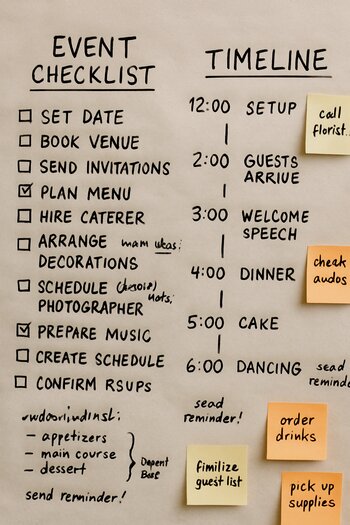 EVENT
CHECKLIST
SET DATE
BOOK VENUE
SEND INVITATIONS
PLAN MENU
HIRE CATERER
ARRANGE
DECORATIONS
SCHEDULE
PHOTOGRAPHER
PREPARE MUSIC
CREATE SCHEDULE
CONFIRM RSUPS
– appetizers
– main course
– dessert
send reminder!
TIMELINE
12:00 SETUP
2:00 GUESTS
ARRIUE
3:00 WELCOME
SPEECH
4:00 DINNER
5:00 CAKE
6:00 DANCING
sead
reminde
sead
reminder!
call
florist..
cheak
audos
order
drinks
fimilize
guest list
pick up
supplies